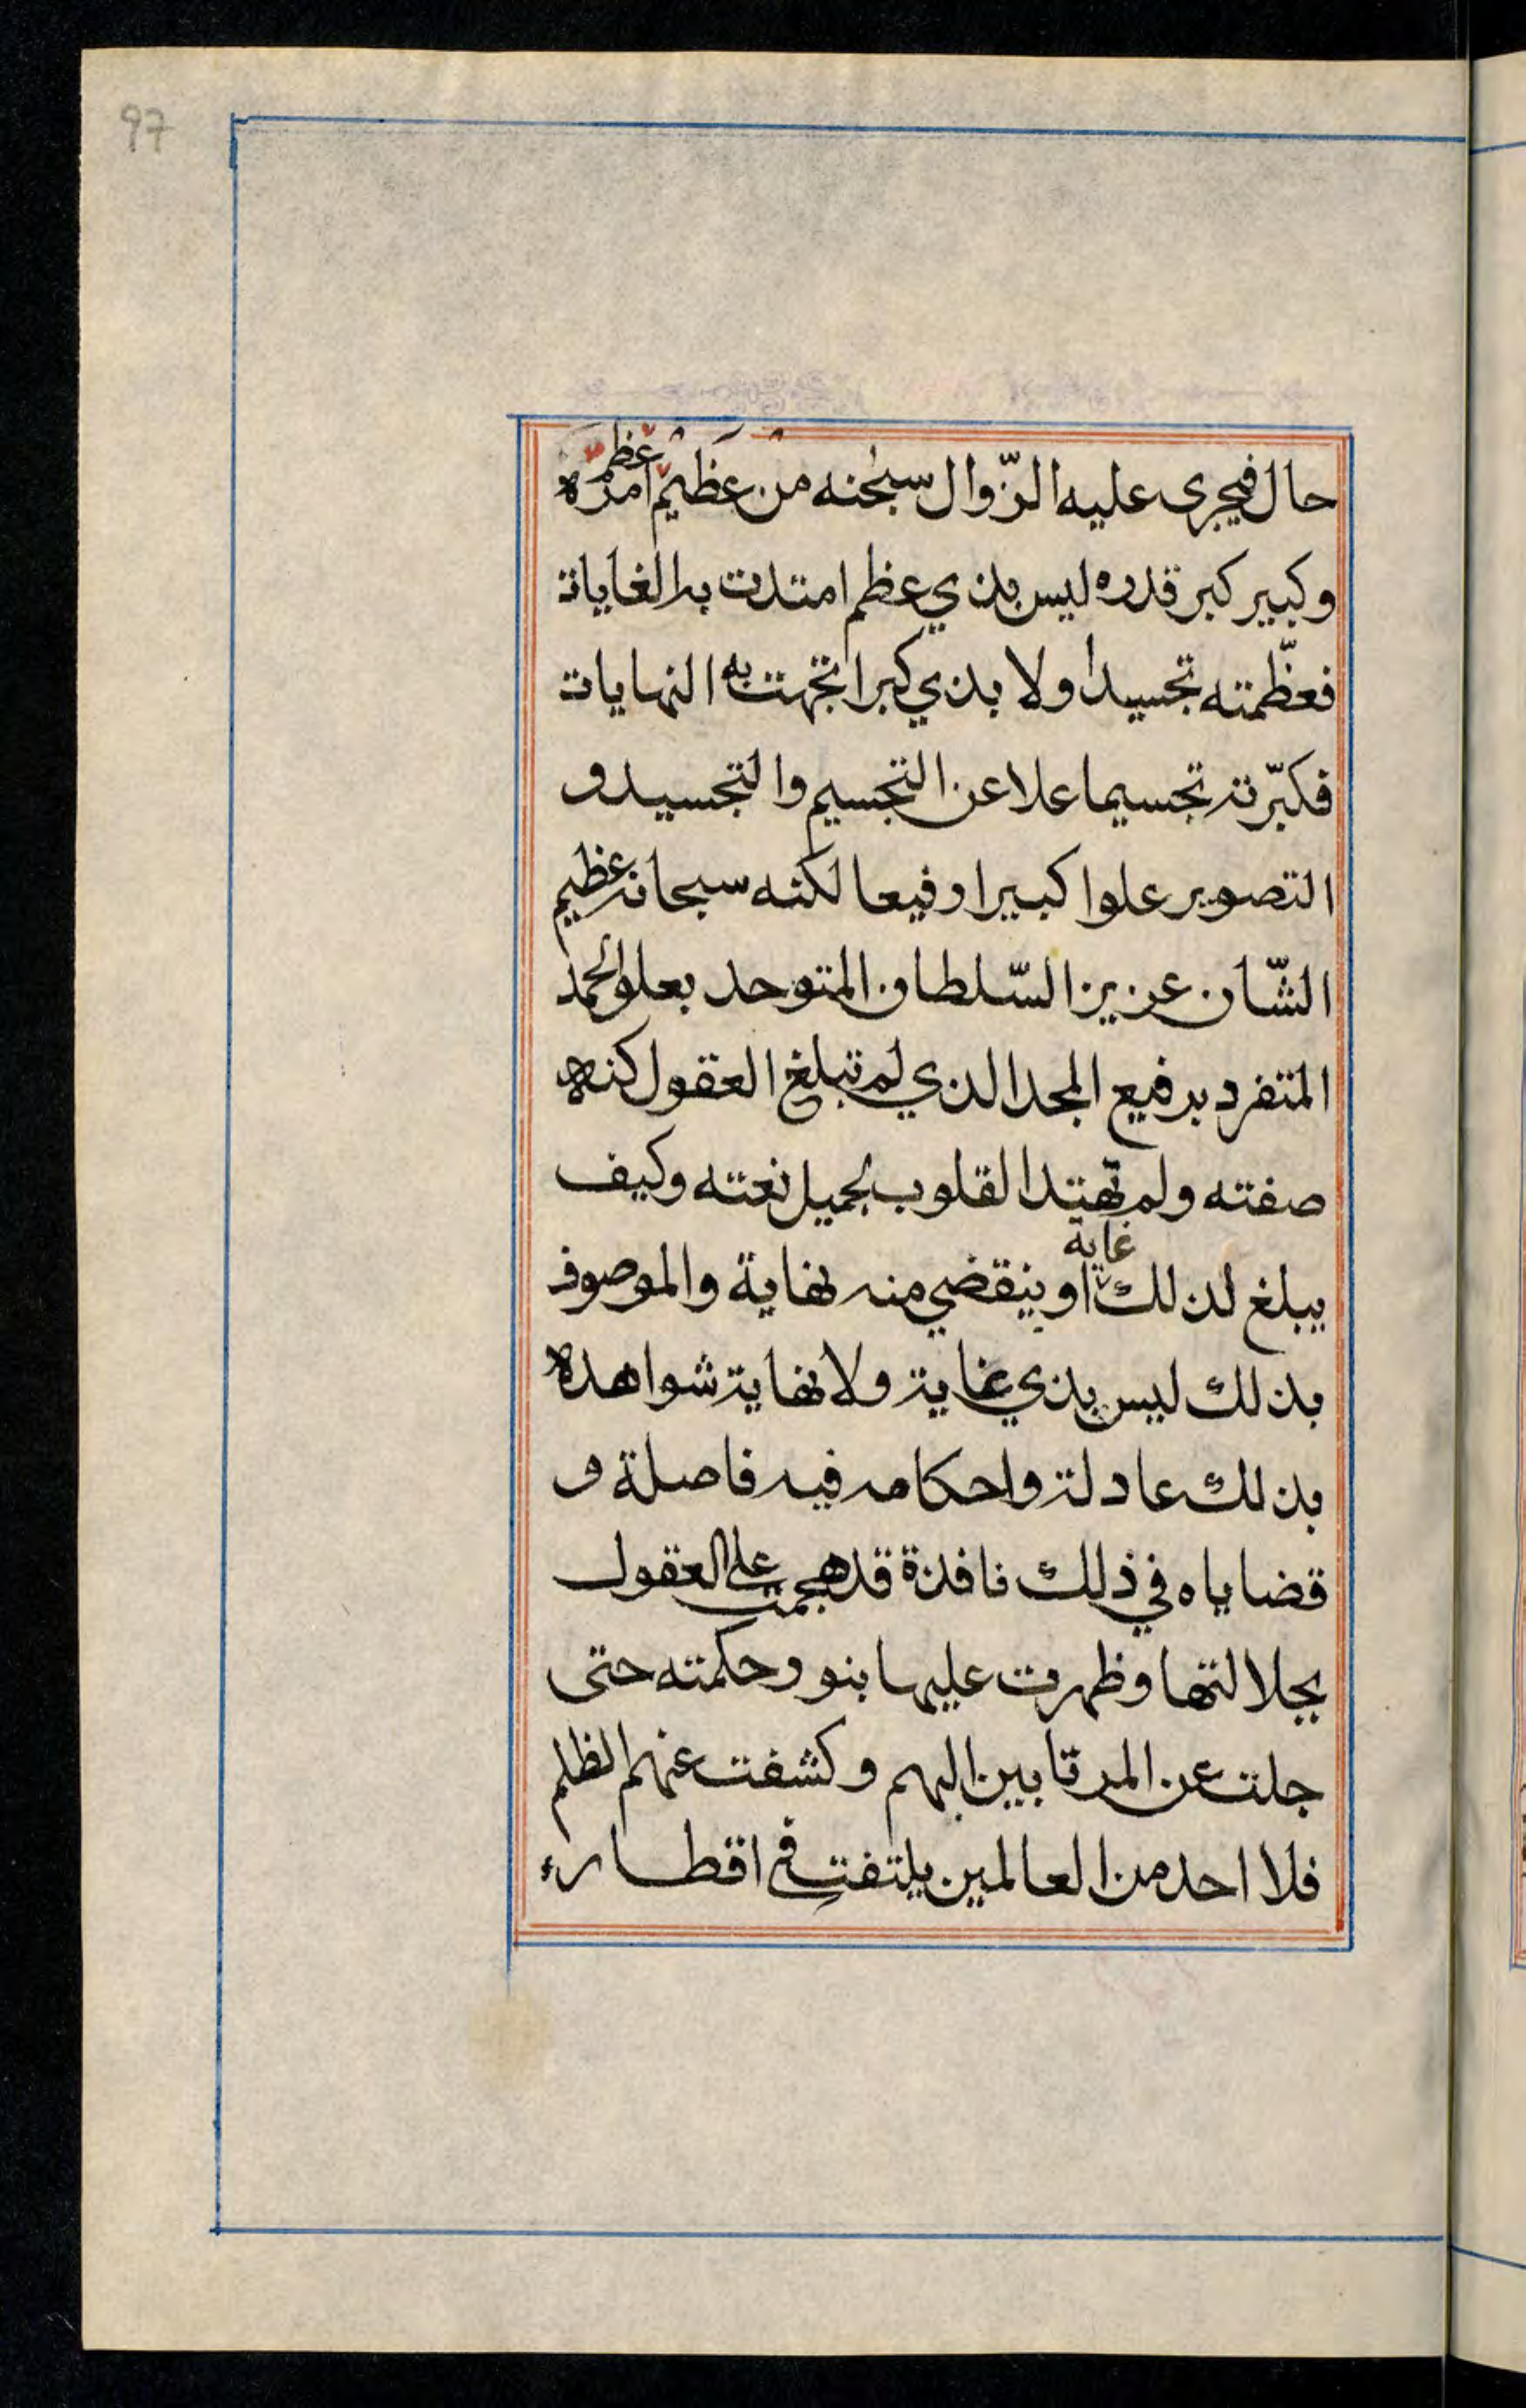 97
حال فيجرى عليه الزّوال سبحٰنه من عظيم عظم امره
وكبير كبر قدره ليس بذي عظم امتدت به الغايات
فعظّمته تجسيدا ولا بذي كبر اتجهت به النهايات
فكبّرته تجسيما علا عن التجسيم والتجسيد و
التصوير علوا كبيرا رفيعا لكنه سبحانه عظيم
الشّان عزيز السّلطان المتوحد بعلو الحمد
المتفرد برفيع المجد الذي لم تبلغ العقول كنه
صفته ولم تهتد القلوب لجميل نعته وكيف
يبلغ لذلك غاية او ينقضي منه نهاية والموصوف
بذلك ليس بذي غاية ولا نهاية شواهده
بذلك عادلة واحكامه فيه فاصلة و
قضاياه في ذلك نافذة قد هجمت على العقول
بجلالتها وظهرت عليها بنور حكمته حتى
جلت عن المرتابين البهم وكشفت عنهم الظلم
فلا احد من العالمين يلتفت في اقطاره